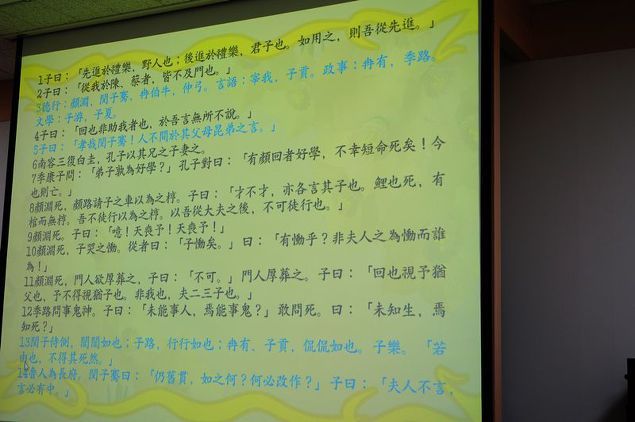 1子曰：「先進於禮樂，野人也；後進於禮樂，君子也。如用之，則吾從先進。」
2子曰：「從我於陳、蔡者，皆不及門也。」
3德行：顏淵，閔子騫，冉伯牛，仲弓。言語：宰我，子貢。政事：冉有，季路。
文學：子游，子夏。
4子曰：「回也非助我者也，於吾言無所不說。」
5子曰：「孝哉閔子騫！人不間於其父母昆弟之言。」
6南容三復白圭，孔子以其兄之子妻之。
7季康子問：「弟子孰為好學？」孔子對曰：「有顏回者好學，不幸短命死矣！今
也則亡。」
8顏淵死，顏路請子之車以為之椁。子曰：「才不才，亦各言其子也。鯉也死，有
棺而無椁。吾不徒行以為之椁。以吾從大夫之後，不可徒行也。」
9顏淵死。子曰：「噫！天喪予！天喪予！」
10顏淵死，子哭之慟。從者曰：「子慟矣。」曰：「有慟乎？非夫人之為慟而誰
為！」
11顏淵死，門人欲厚葬之，子曰：「不可。」門人厚葬之。子曰：「回也視予猶
父也，予不得視猶子也。非我也，夫二三子也。」
12季路問事鬼神。子曰：「未能事人，焉能事鬼？」敢問死。曰：「未知生，焉
知死？」
13閔子侍側，誾誾如也；子路，行行如也；冉有、子貢，侃侃如也。子樂。「若
由也，不得其死然。」
14魯人為長府。閔子騫曰：「仍舊貫，如之何？何必改作？」子曰：「夫人不言，
言必有中。」